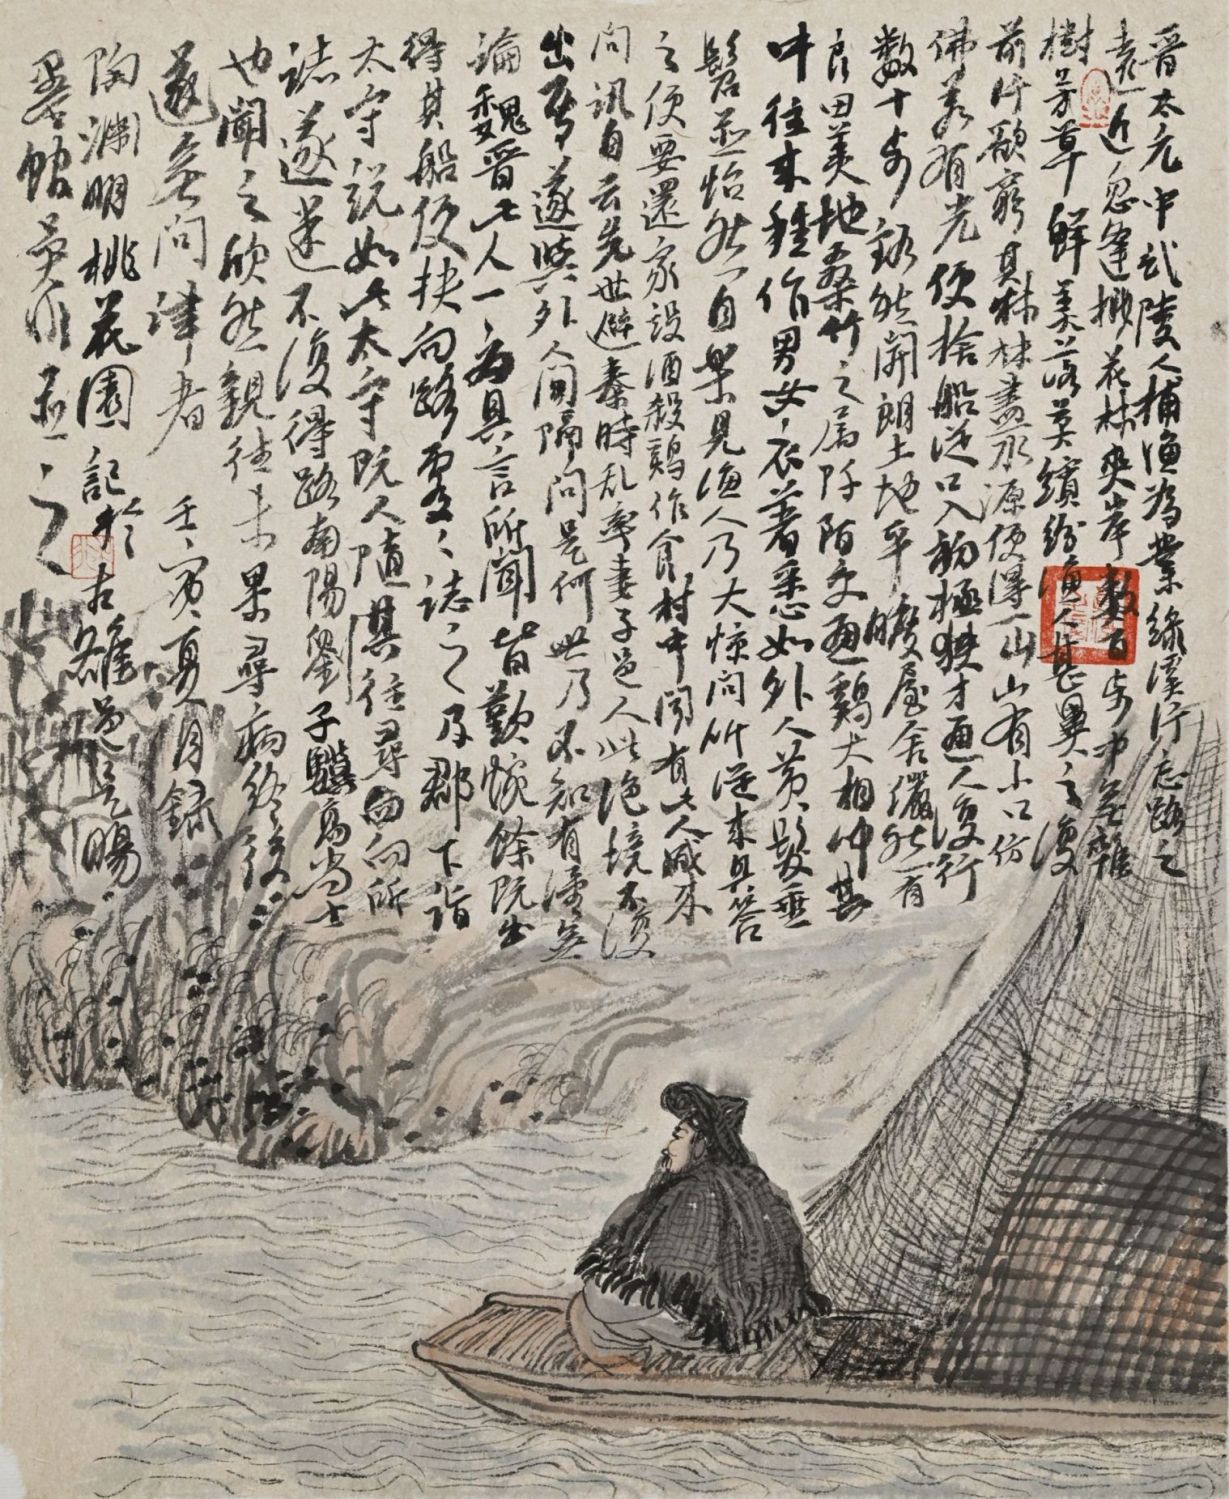 晋太元中武陵人捕渔为業緣溪行忘路之
遠近忽逢桃花林夾岸數百步中無雜
樹芳草鮮美落英繽紛漁人甚異之復
前行欲窮其林林盡水源便得一山山有小口仿
佛若有光便捨船從口入初極狹才通人復行
數十步豁然開朗土地平曠屋舍儼然有
良田美地桑竹之属阡陌交通鷄犬相聞其
中往来種作男女衣著悉如外人黄髮垂
髫並怡然自樂見漁人乃大惊问所從来具答
之便要還家設酒殺鷄作食村中闻有此人咸来
问訊自云先世避秦時乱率妻子邑人此绝境不復
出焉遂與外人间隔问是何世乃不知有漢無
論魏晋此人一一为具言所聞皆歎惋餘既出
得其船便扶向路處處誌之及郡下詣
太守説如此太守既人隨其往尋向向所
誌遂迷不復得路南陽劉子驥高尚士
也聞之欣然親往未果尋病终後
遂無问津者 壬寅夏月録
陶淵明桃花園記於古雒邑
墨館